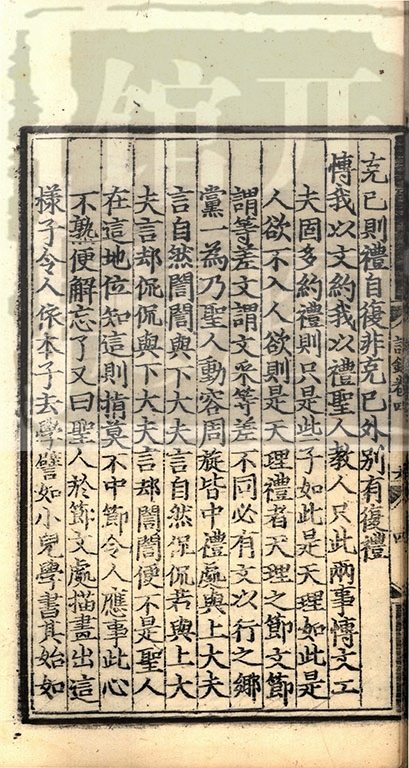 克己則禮自復非克己外別有復禮
慱我以文約我以禮聖人教人只此兩事慱文工
夫固多約禮則只是些子如此是天理如此是
人欲不入人欲則是天理禮者天理之節文節
謂等差文謂文采等差不同必有文以行之鄉
黨一為乃聖人動容周旋皆中禮處與上大夫
言自然誾誾與下大夫言自然侃侃若與上大
夫言却侃侃與下大夫言却誾誾便不是聖人
在這地位知這則揹莫不中節令人應事此心
不熟便解忘了又曰聖人於節文處描畫出這
樣子令人依本子去學譬如小兒學書其始如
語錄卷四